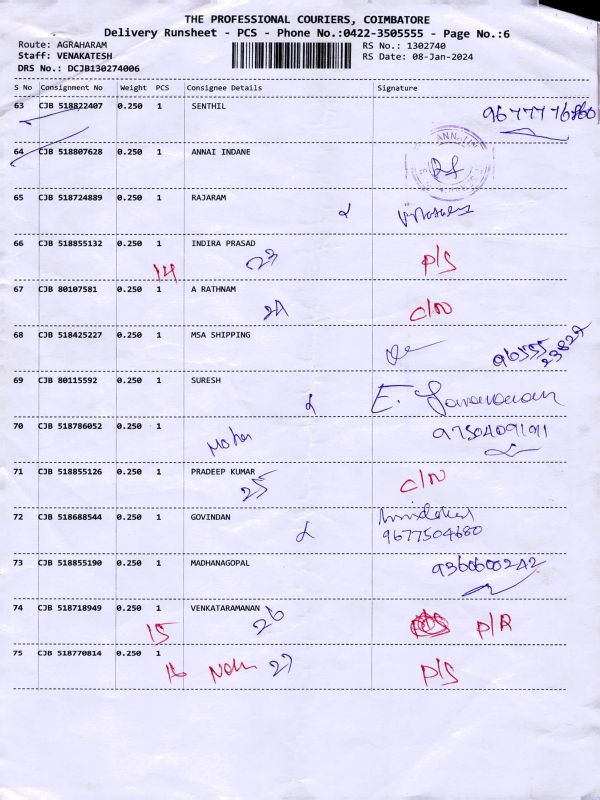 THE PROFESSIONAL COURIERS, COIMBATORE
Delivery Runsheet - PCS - Phone No.:0422-3505555 - Page No.:6
Route: AGRAHARAM RS No.: 1302740
Staff: VENAKATESH RS Date: 08-Jan-2024
DRS No.: DCJB130274006
S No Consignment No Weight PCS Consignee Details Signature
63 CJB 518822407 0.250 1 SENTHIL
64 CJB 518807628 0.250 1 ANNAI INDANE
65 CJB 518724889 0.250 1 RAJARAM
66 CJB 518855132 0.250 1 INDIRA PRASAD P/S
14 23
67 CJB 80107581 0.250 1 A RATHNAM C/N
68 CJB 518425227 0.250 1 MSA SHIPPING
96555
23827
69 CJB 80115592 0.250 1 SURESH
E.
70 CJB 518786052 0.250 1 9750409191
71 CJB 518855126 0.250 1 PRADEEP KUMAR C/N
25
72 CJB 518688544 0.250 1 GOVINDAN
9677504680
73 CJB 518855190 0.250 1 MADHANAGOPAL 9360600242
74 CJB 518718949 0.250 1 VENKATARAMANAN P/R
15 26
75 CJB 518770814 0.250 1 P/S
16 27